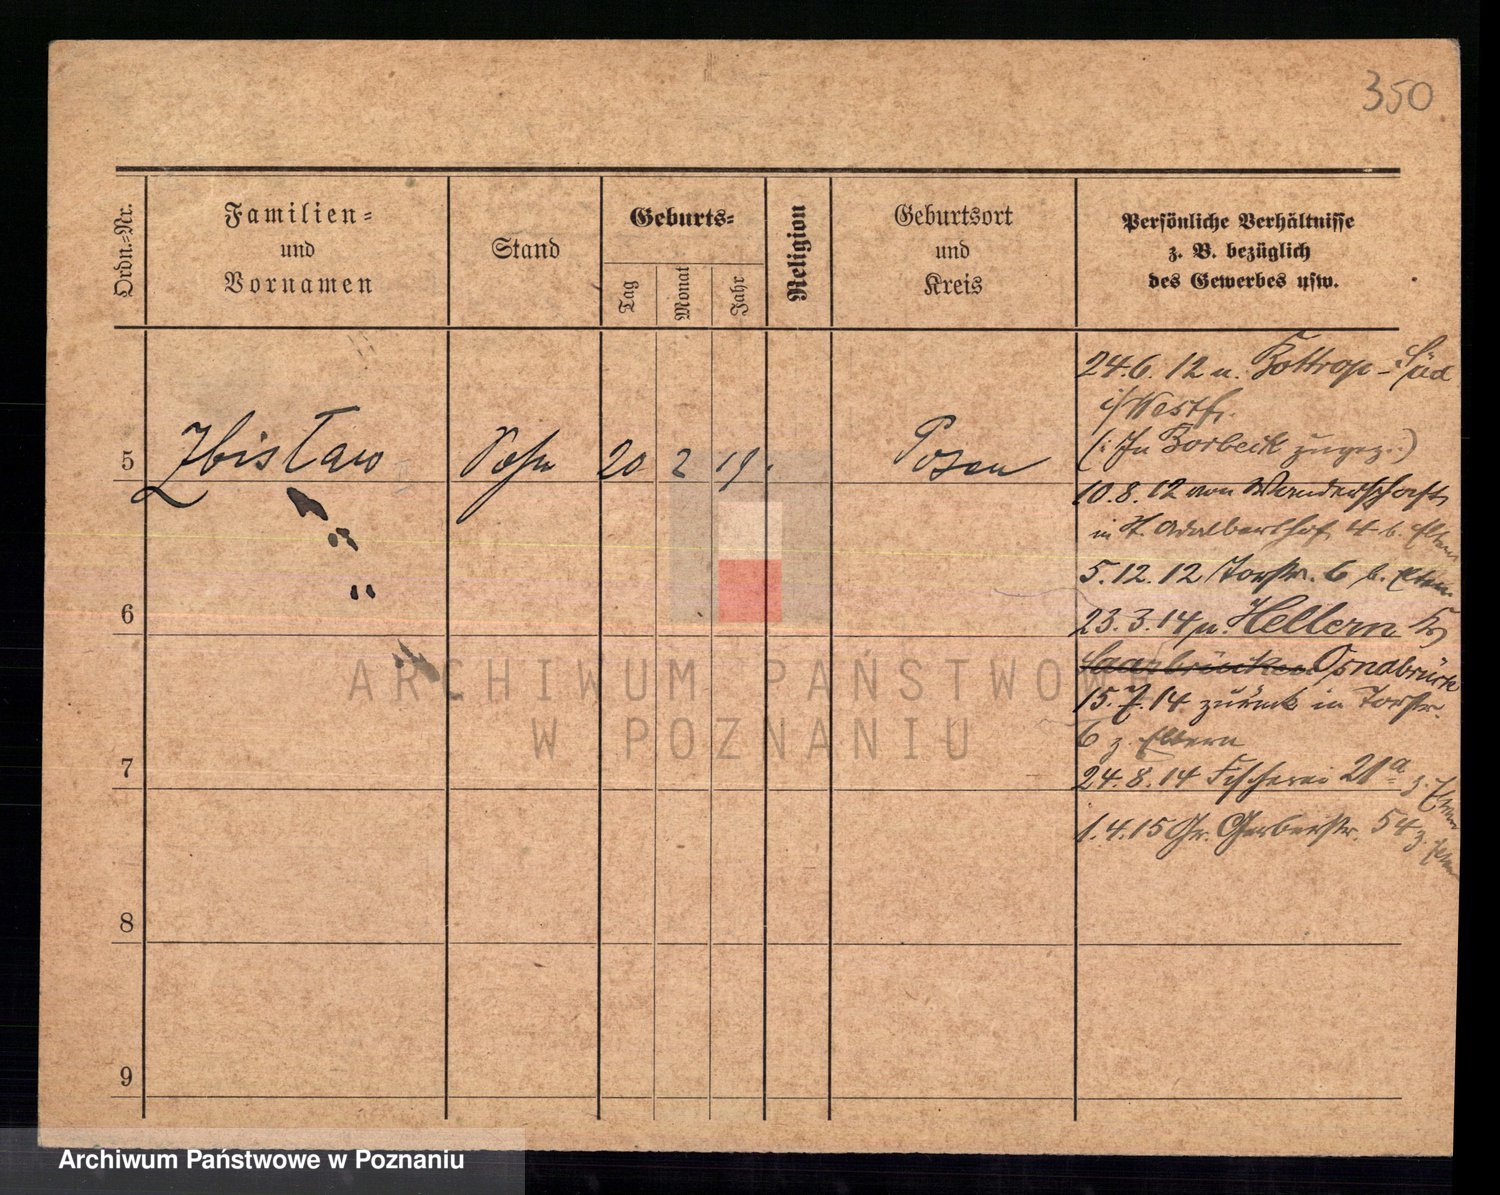 350
Ordn.=Nr.
Familien=
und
Vornamen
Stand
Geburts=
Tag
Monat
Jahr
Religion
Geburtsort
und
Kreis
Persönliche Verhältnisse
z. B. bezüglich
des Gewerbes usw.
5 Zbisław Sohn 20 2 19. Posen
6
7
8
9
24.6.12 n. Bottrop-Süd
i/Westf.
(: In Borbeck zugez.:)
10.8.12 von Wanderschaft
in St. Adalberthof 4 b. Eltern
5.12.12 Torstr. 6 b. Eltern
23.3.14 n. Hellern Kr
Saarbrücken Osnabrück
15.7.14 zurück in Torstr.
6 z. Eltern
24.8.14 Fischerei 21a z. Eltern
1.4.15 Gr. Gerberstr. 54 z. Eltern
ARCHIWUM PAŃSTWOWE
W POZNANIU
Archiwum Państwowe w Poznaniu